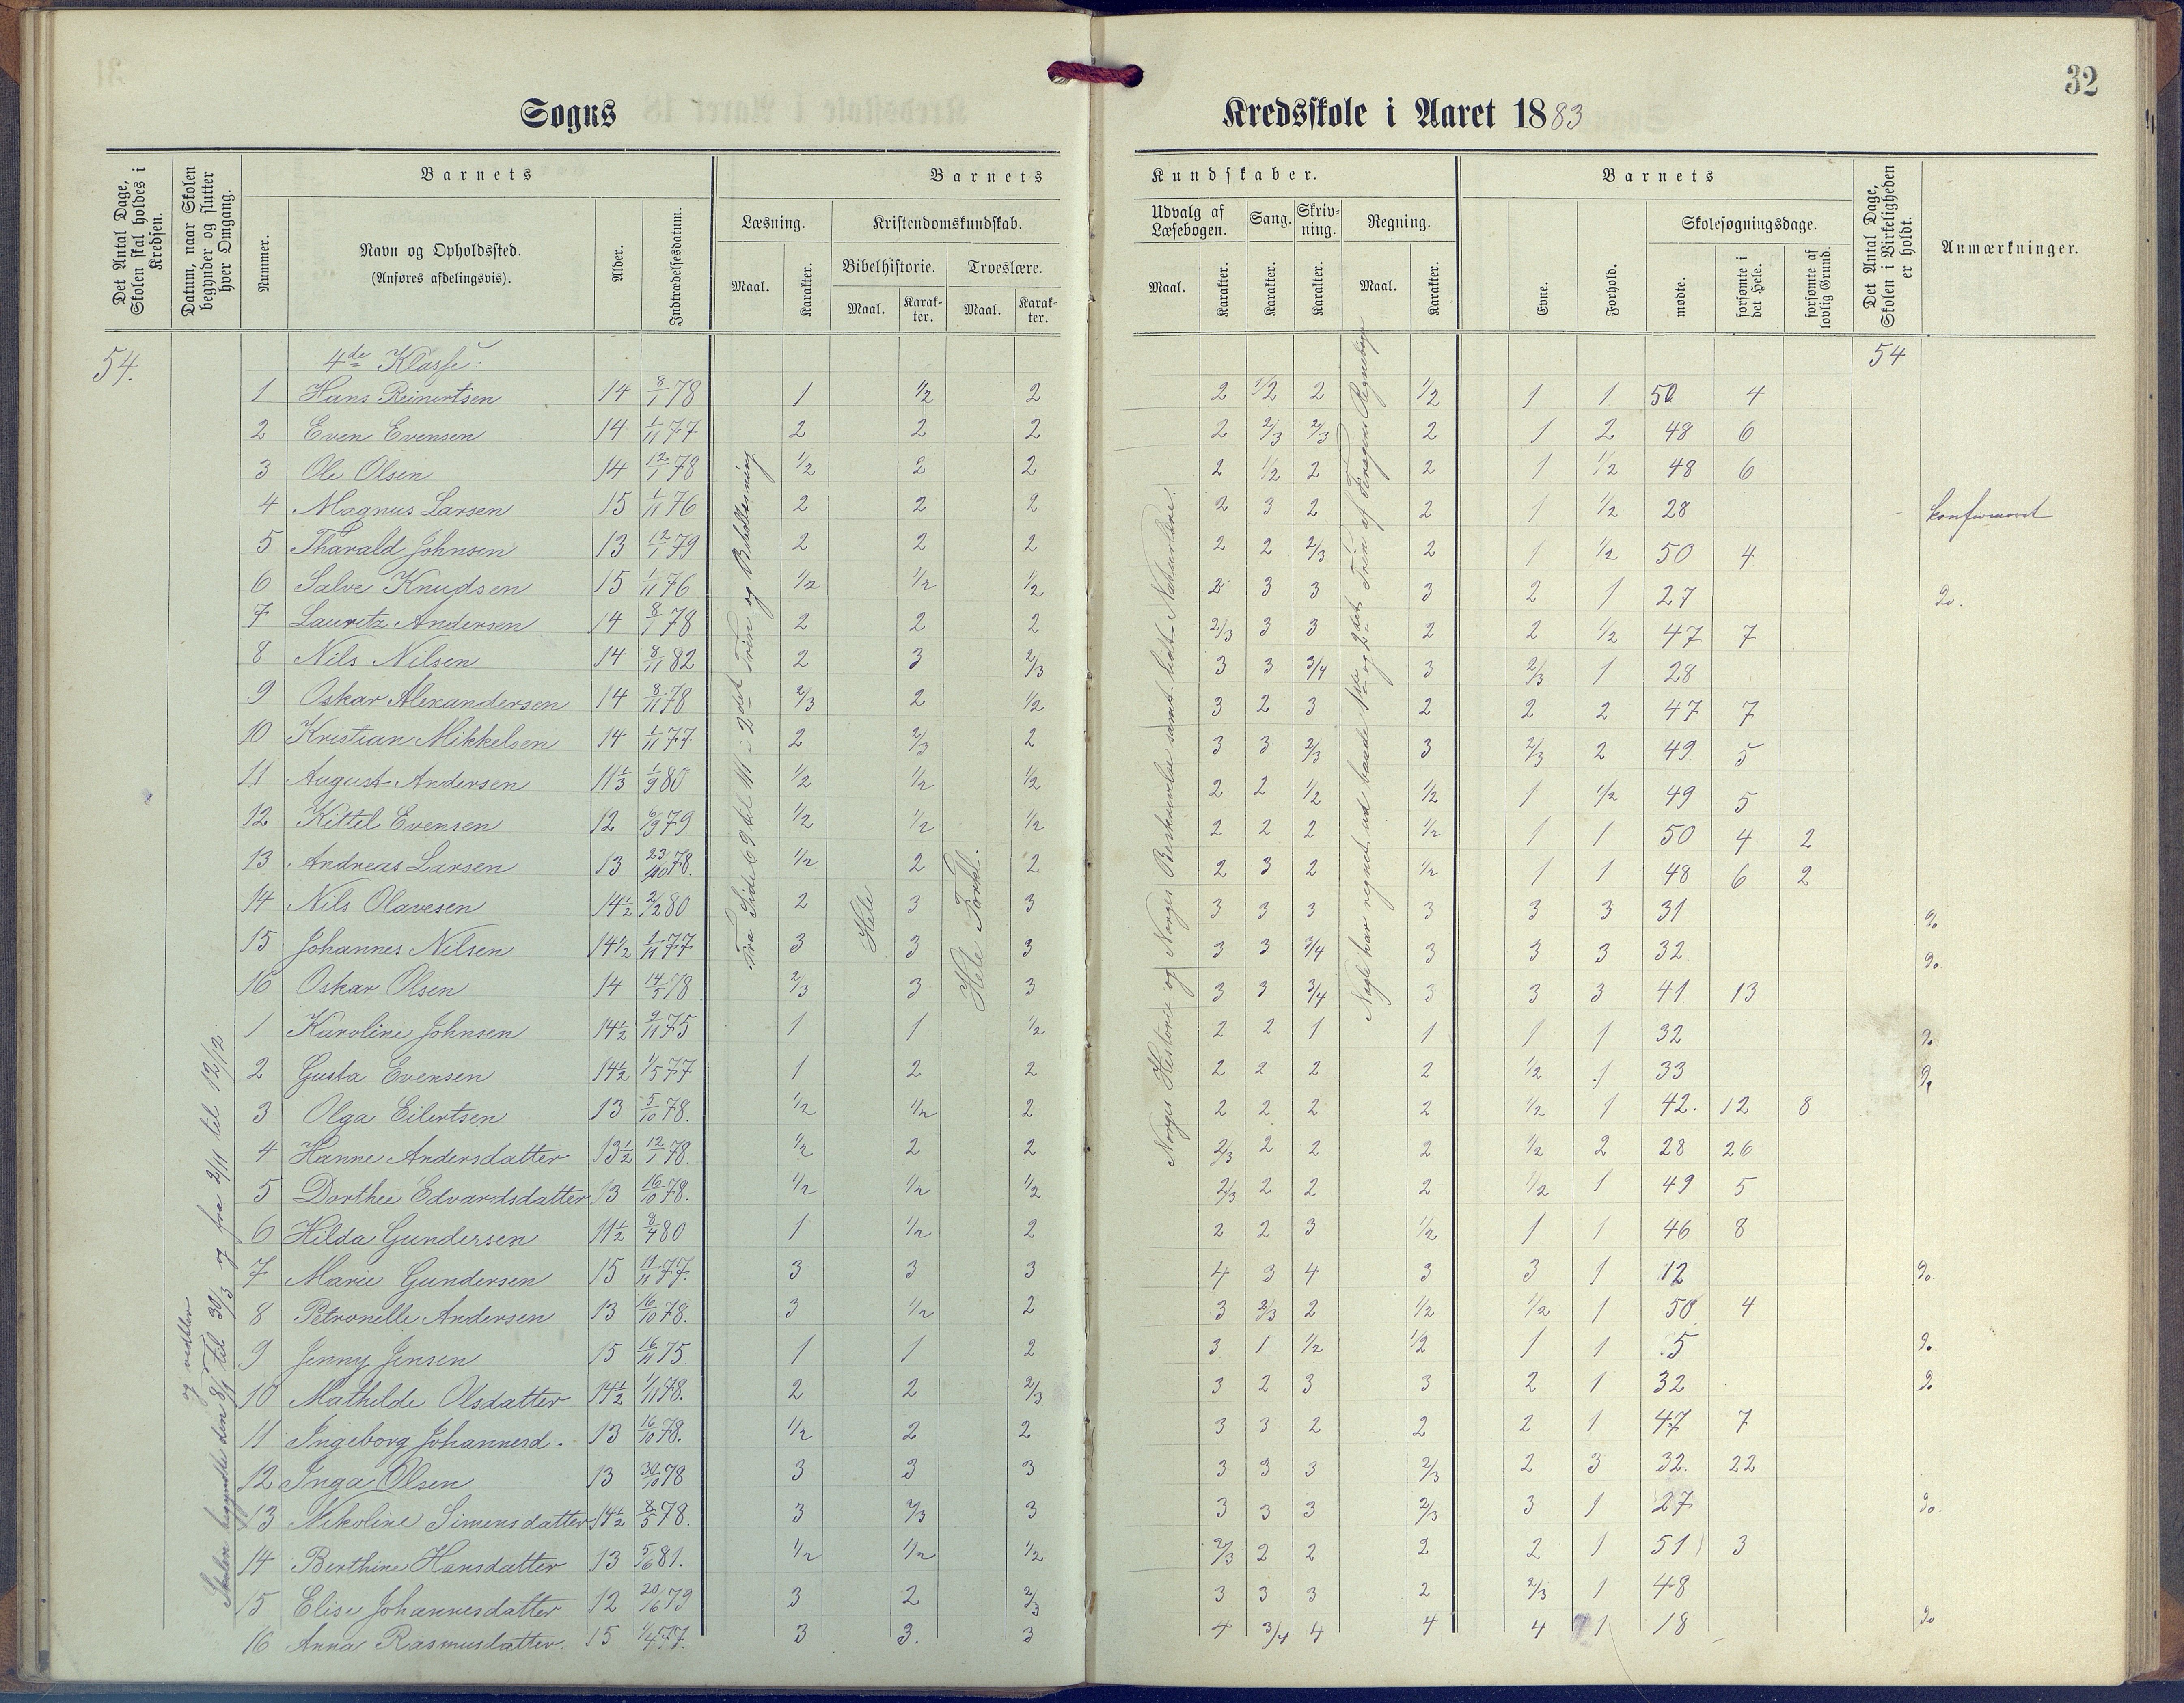 32
Sogns Kredsskole i Aaret 1883
Det Antal Dage, Skolen skal holdes i Kredsen.
Datum, naar Skolen begynder og slutter hver Omgang.
Barnets
Nummer.
Navn og Opholdssted.
(Anføres afdelingsvis).
Alder.
Indtrædelsesdatum.
Barnets Kundskaber.
Læsning.
Maal.
Karakter.
Kristendomskundskab.
Bibelhistorie.
Maal.
Karakter.
Troeslære.
Maal.
Karakter.
Udvalg af Læsebogen.
Maal.
Karakter.
Sang.
Karakter.
Skrivning.
Karakter.
Regning.
Maal.
Karakter.
Barnets
Evne.
Forhold.
Skolesøgningsdage.
mødte.
forsømte i det Hele.
forsømte af lovlig Grund.
Det Antal Dage, Skolen i Virkeligheden er holdt.
Anmærkninger.
54. 4de Klasse: 54
1 Hans Reinertsen 14 8/1 78 1 1/2 2 2 1/2 2 1/2 1 1 50 4
2 Even Evensen 14 1/11 77 2 2 2 2 2/3 2/3 2 1 2 48 6
3 Ole Olsen 14 12/1 78 1/2 2 2 2 1/2 2 2 1 1/2 48 6
4 Magnus Larsen 15 1/11 76 2 2 2 2 3 2 2 1 1/2 28 konfirmeret
5 Tharald Johnsen 13 12/1 79 2 2 2 2 2 2/3 2 1 1/2 50 4
6 Salve Knudsen 15 1/11 76 1/2 1/2 1/2 2 3 3 3 2 1 27 Do.
7 Lauritz Andersen 14 8/1 78 2 2 2 2/3 3 3 2 2 1/2 47 7
8 Nils Nilsen 14 8/11 82 2 3 2/3 3 3 3/4 3 2/3 1 28
9 Oskar Alexandersen 14 8/11 78 2/3 2 1/2 3 2 3 2 2 2 47 7
10 Kristian Mikkelsen 14 1/11 77 2 2/3 2 3 3 2/3 3 2/3 2 49 5
11 August Andersen 11 1/3 1/9 80 1/2 1/2 1/2 2 2 1/2 1/2 1 1/2 49 5
12 Kittel Evensen 12 6/9 79 1/2 1/2 1/2 2 2 2 1/2 1 1 50 4 2
13 Andreas Larsen 13 23/10 78. 1/2 2 2 2 3 2 1/2 1 1 48 6 2
14 Nils Olavesen 14 1/2 2/2 80 2 3 3 3 3 3 3 3 3 31 Do
15 Johannes Nilsen 14 1/2 1/11 77 3 3 3 3 3 3/4 3 3 3 32 Do
16 Oskar Olsen 14 14/5 78 2/3 3 3 3 3 3/4 3 3 3 41 13
1 Karoline Johnsen 14 1/2 9/11 75 1 1 1/2 2 2 1 1 1 1 32 Do
2 Gusta Evensen 14 1/2 1/5 77 1 2 2 2 2 2 2 1/2 1 33 Do
3 Olga Eilertsen 13 5/10 78. 1/2 1/2 2 2 2 2 2 1/2 1 42. 12 8
4 Hanne Andersdatter 13 1/2 12/1 78. 1/2 2 2 2/3 2 2 2 1/2 2 28 26
5 Dorthee Edvardsdatter 13 16/10 78. 1/2 1/2 1/2 2/3 2 2 2 1/2 1 49 5
6 Hilda Gundersen 11 1/2 8/4 80 1 1/2 2 2 2 3 1/2 1 1 46 8
7 Marie Gundersen 15 11/11 77. 3 3 3 4 3 4 3 3 1 12 Do.
8 Petronelle Andersen 13 16/10 78. 3 1/2 2 3 2/3 2 1/2 1/2 1 50 4
9 Jenny Jensen 15 16/11 75 1 1 2 3 1 1/2 1/2 1 1 5 Do.
10 Mathilde Olsdatter 14 1/2 1/11 78. 2 2 2/3 3 2 3 3 2 1 32 Do
11 Ingeborg Johannesd. 13 16/10 78. 1/2 2 2 3 3 2 2 2 1 47 7
12 Inga Olsen 13 30/10 78 3 3 3 3 3 3 2/3 2 3 32. 22
13 Nikoline Simensdatter 14 1/2 8/5 78. 3 2/3 3 3 3 3 2/3 3 1 27 Do.
14 Berthine Hansdatter 13 5/6 81. 1/2 1/2 1/2 2/3 2 2 2 2 1 51 3
15 Elise Johannesdatter 12 20/16 79 3 2 2/3 3 3 3 2 2/3 1 48
16 Anna Rasmusdatter 15 1/4 77. 3 3. 3 4 3/4 4 4 4 1 18 Do
og vedblev
Skolen begyndte den 8/1 til 30/3 og fra 2/11 til 12/12.
Fra Side 69 til 111 i 2det Trin og Bibellæsning
Hele
Hele Forkl.
Norges Historie og Norges Beskrivelse samt lidt Naturlære.
Nogle har regnet ud baade 1ste og 2det Trin af Fenagens Regnebog